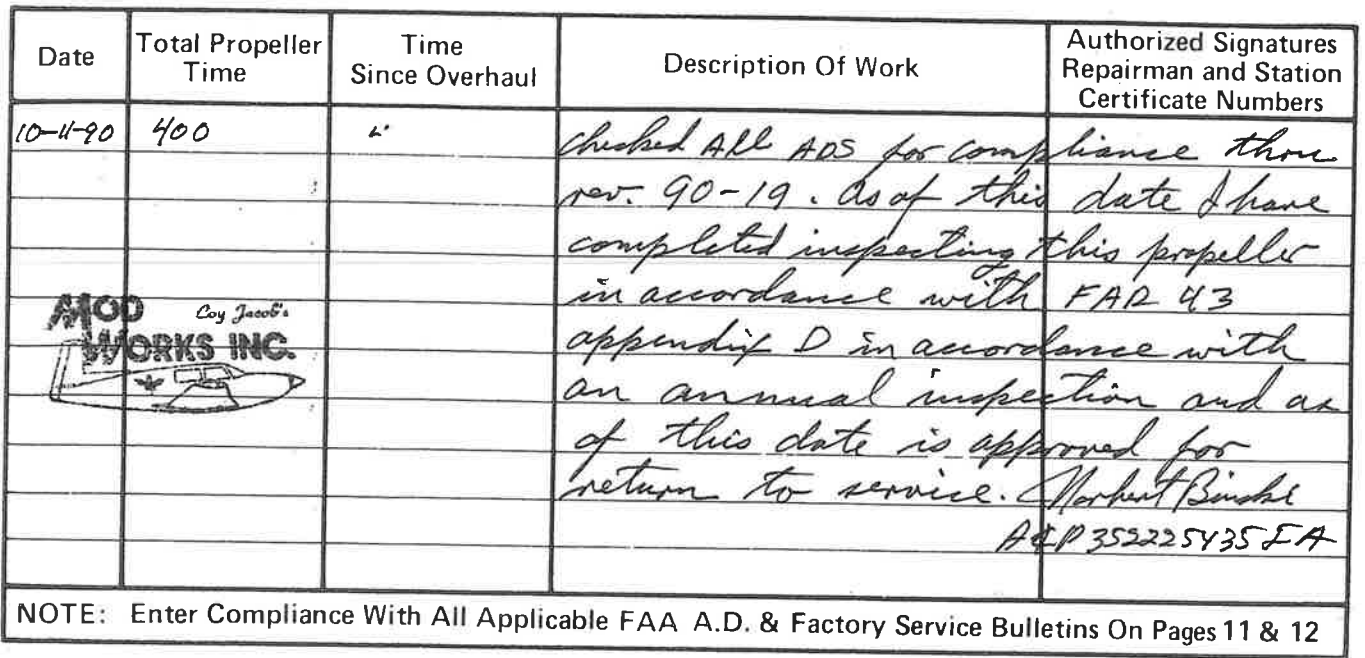 Date
Total Propeller
Time
Time
Since Overhaul
Description Of Work
Authorized Signatures
Repairman and Station
Certificate Numbers
10-11-90 400
checked All ADS for compliance thru
rev. 90-19. as of this date I have
completed inspecting this propeller
in accordance with FAR 43
appendix D in accordance with
an annual inspection and as
of this date is approved for
return to service. Norbert
A&P 352225435 IA
MOD
Coy Jacob's
WORKS INC.
NOTE: Enter Compliance With All Applicable FAA A.D. & Factory Service Bulletins On Pages 11 & 12